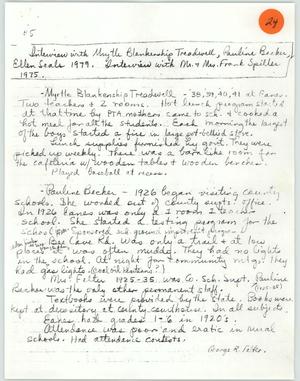 24
45
Interview with Myrtle Blankenship Treadwell, Pauline Becker,
Ellen Seals 1979. Interview with Mr. & Mrs. Frank Spiller
1975.
-Myrtle Blankenship Treadwell - 38, 39, 40, 41 at Eanes.
Two teachers & 2 rooms. Hot lunch program started
at that time by PTA. Mothers came to sch. & cooked a
hot meal for all the students. Each morning the largest
of the boys started a fire in large pot-bellied stove.
Lunch supplies furnished by govt. They were
picked up weekly. There was a barn like room for
the cafeteria w/wooden tables & wooden benches.
Played baseball at recess.
-Pauline Becker - 1926 began visiting county
schools. She worked out of county supts. office.
In 1926 Eanes was only a 1 room 2 teacher
school. She started a testing program for the
school. Sponsored
Bee Cave Rd. was only a trail & at low
places it was often muddy. They had no lights
in the school. At night for community mtgs. they
had gas lights. (coal oil lanterns?)
Mrs. Felter 1925-35. was Co. Sch. Supt. Pauline
Becker was the only other permanent staff.
Textbooks were provided by the State. Books were
kept at depository at County Courthouse. In all subjects.
Eanes hath grades 1-6 in 1920's.
Attendance was poor and eratic in rural
schools. Had attendance contests.
George R. Felter.